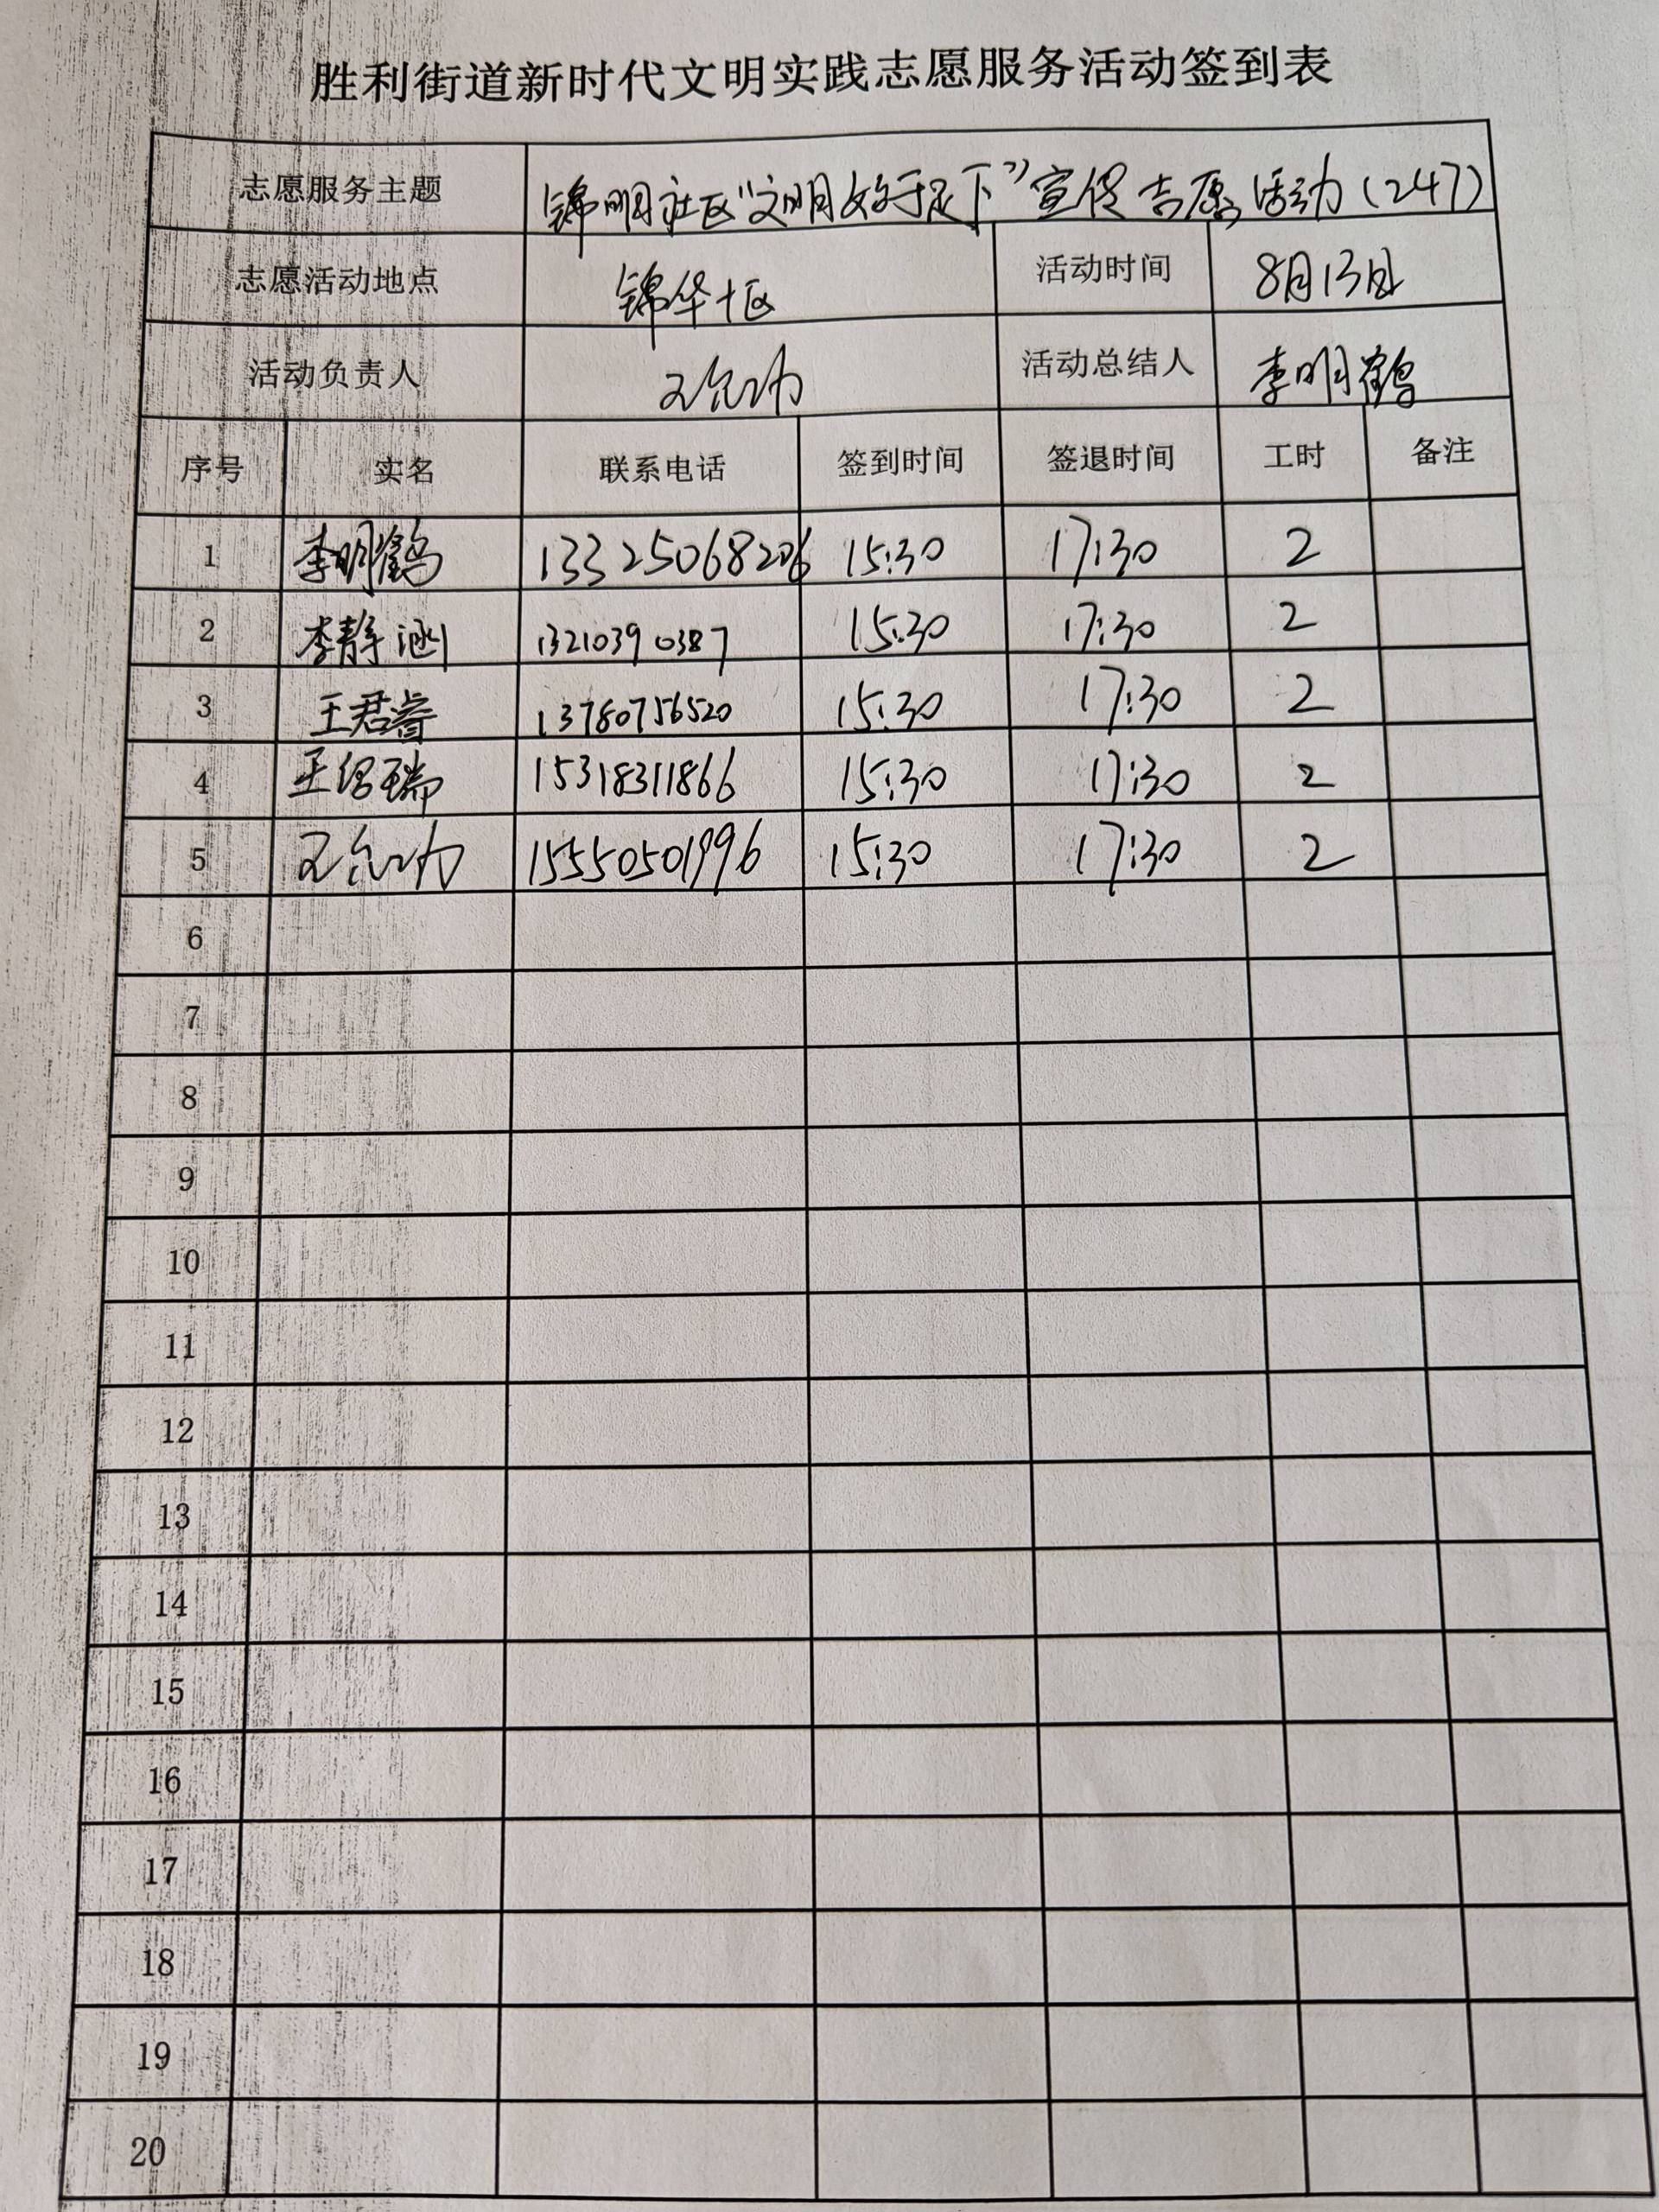 胜利街道新时代文明实践志愿服务活动签到表
志愿服务主题 锦明社区“文明始于足下”宣传志愿活动(247)
志愿活动地点 锦华十区 活动时间 8月13日
活动负责人 活动总结人 李明鹤
序号 实名 联系电话 签到时间 签退时间 工时 备注
1 李明鹤 13325068206 15:30 17:30 2
2 李静涵 13210390387 15:30 17:30 2
3 王君睿 13780756520 15:30 17:30 2
4 王绍瑞 15318311866 15:30 17:30 2
5 15550501996 15:30 17:30 2
6
7
8
9
10
11
12
13
14
15
16
17
18
19
20